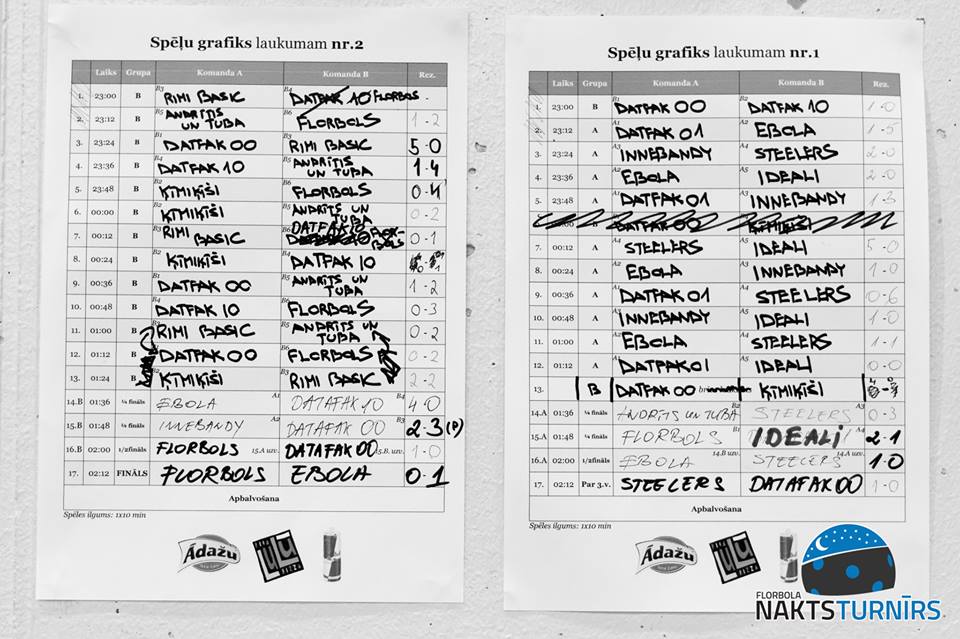 Spēļu grafiks laukumam nr.2
Laiks Grupa Komanda A Komanda B Rez.
1. 23:00 B B3 RIMI BASIC B4 DATFAK 10 FLORBOLS
2. 23:12 B B5 ANDRĪTS UN TUBA FLORBOLS 1-2
3. 23:24 B B1 DATFAK 00 B3 RIMI BASIC 5-0
4. 23:36 B B4 DATFAK 10 B5 ANDRĪTS UN TUBA 1-4
5. 23:48 B B2 ĶIMIĶĪŠI B6 FLORBOLS 0-4
6. 00:00 B B2 ĶIMIĶĪŠI B5 ANDRĪTS UN TUBA 0-2
7. 00:12 B B3 RIMI BASIC B6 DATFAK 10 FLORBOLS 0-1
8. 00:24 B B2 ĶIMIĶĪŠI B4 DATFAK 10
9. 00:36 B B1 DATFAK 00 B5 ANDRĪTS UN TUBA 1-2
10. 00:48 B B4 DATFAK 10 B6 FLORBOLS 0-3
11. 01:00 B B3 RIMI BASIC B5 ANDRĪTS UN TUBA 0-2
12. 01:12 B DATFAK 00 FLORBOLS 0-2
13. 01:24 B B2 ĶIMIĶĪŠI B3 RIMI BASIC 2-2
14.B 01:36 ¼ fināls EBOLA A1 DATAFAK 10 B4 4-0
15.B 01:48 ¼ fināls INNEBANDY A2 DATAFAK 00 B3 2-3 (P)
16.B 02:00 1/2fināls FLORBOLS 15.A uzv. DATAFAK 00 15.B uzv. 1-0
17. 02:12 FINĀLS FLORBOLS EBOLA 0-1
Apbalvošana
Spēles ilgums: 1x10 min
Ādažu
ULU
Spēļu grafiks laukumam nr.1
Laiks Grupa Komanda A Komanda B Rez.
1. 23:00 B B1 DATFAK 00 B2 DATFAK 10 1-0
2. 23:12 A A1 DATFAK 01 A2 EBOLA 1-5
3. 23:24 A A3 INNEBANDY A4 STEELERS 2-0
4. 23:36 A A2 EBOLA A5 IDEALI 2-0
5. 23:48 A A1 DATFAK 01 A3 INNEBANDY 1-3
DATFAK 00 ĶIMIĶĪŠI
7. 00:12 A A4 STEELERS A5 IDEALI 5-0
8. 00:24 A A2 EBOLA A3 INNEBANDY 1-0
9. 00:36 A A1 DATFAK 01 A4 STEELERS 0-6
10. 00:48 A A3 INNEBANDY A5 IDEALI 1-0
11. 01:00 A A2 EBOLA A4 STEELERS 1-1
12. 01:12 A A1 DATFAK 01 A5 IDEALI 0-0
13. B DATFAK 00 ĶIMIĶĪŠI
14.A 01:36 ¼ fināls ANDRĪTS UN TUBA B2 STEELERS A3 0-3
15.A 01:48 ¼ fināls FLORBOLS B1 IDEALI A4 2-1
16.A 02:00 1/2fināls EBOLA 14.B uzv. STEELERS 14.A uzv. 1-0
17. 02:12 Par 3.v. STEELERS DATAFAK 00 1-0
Apbalvošana
Spēles ilgums: 1x10 min
Ādažu
ULU
FLORBOLA
NAKTSTURNĪRS